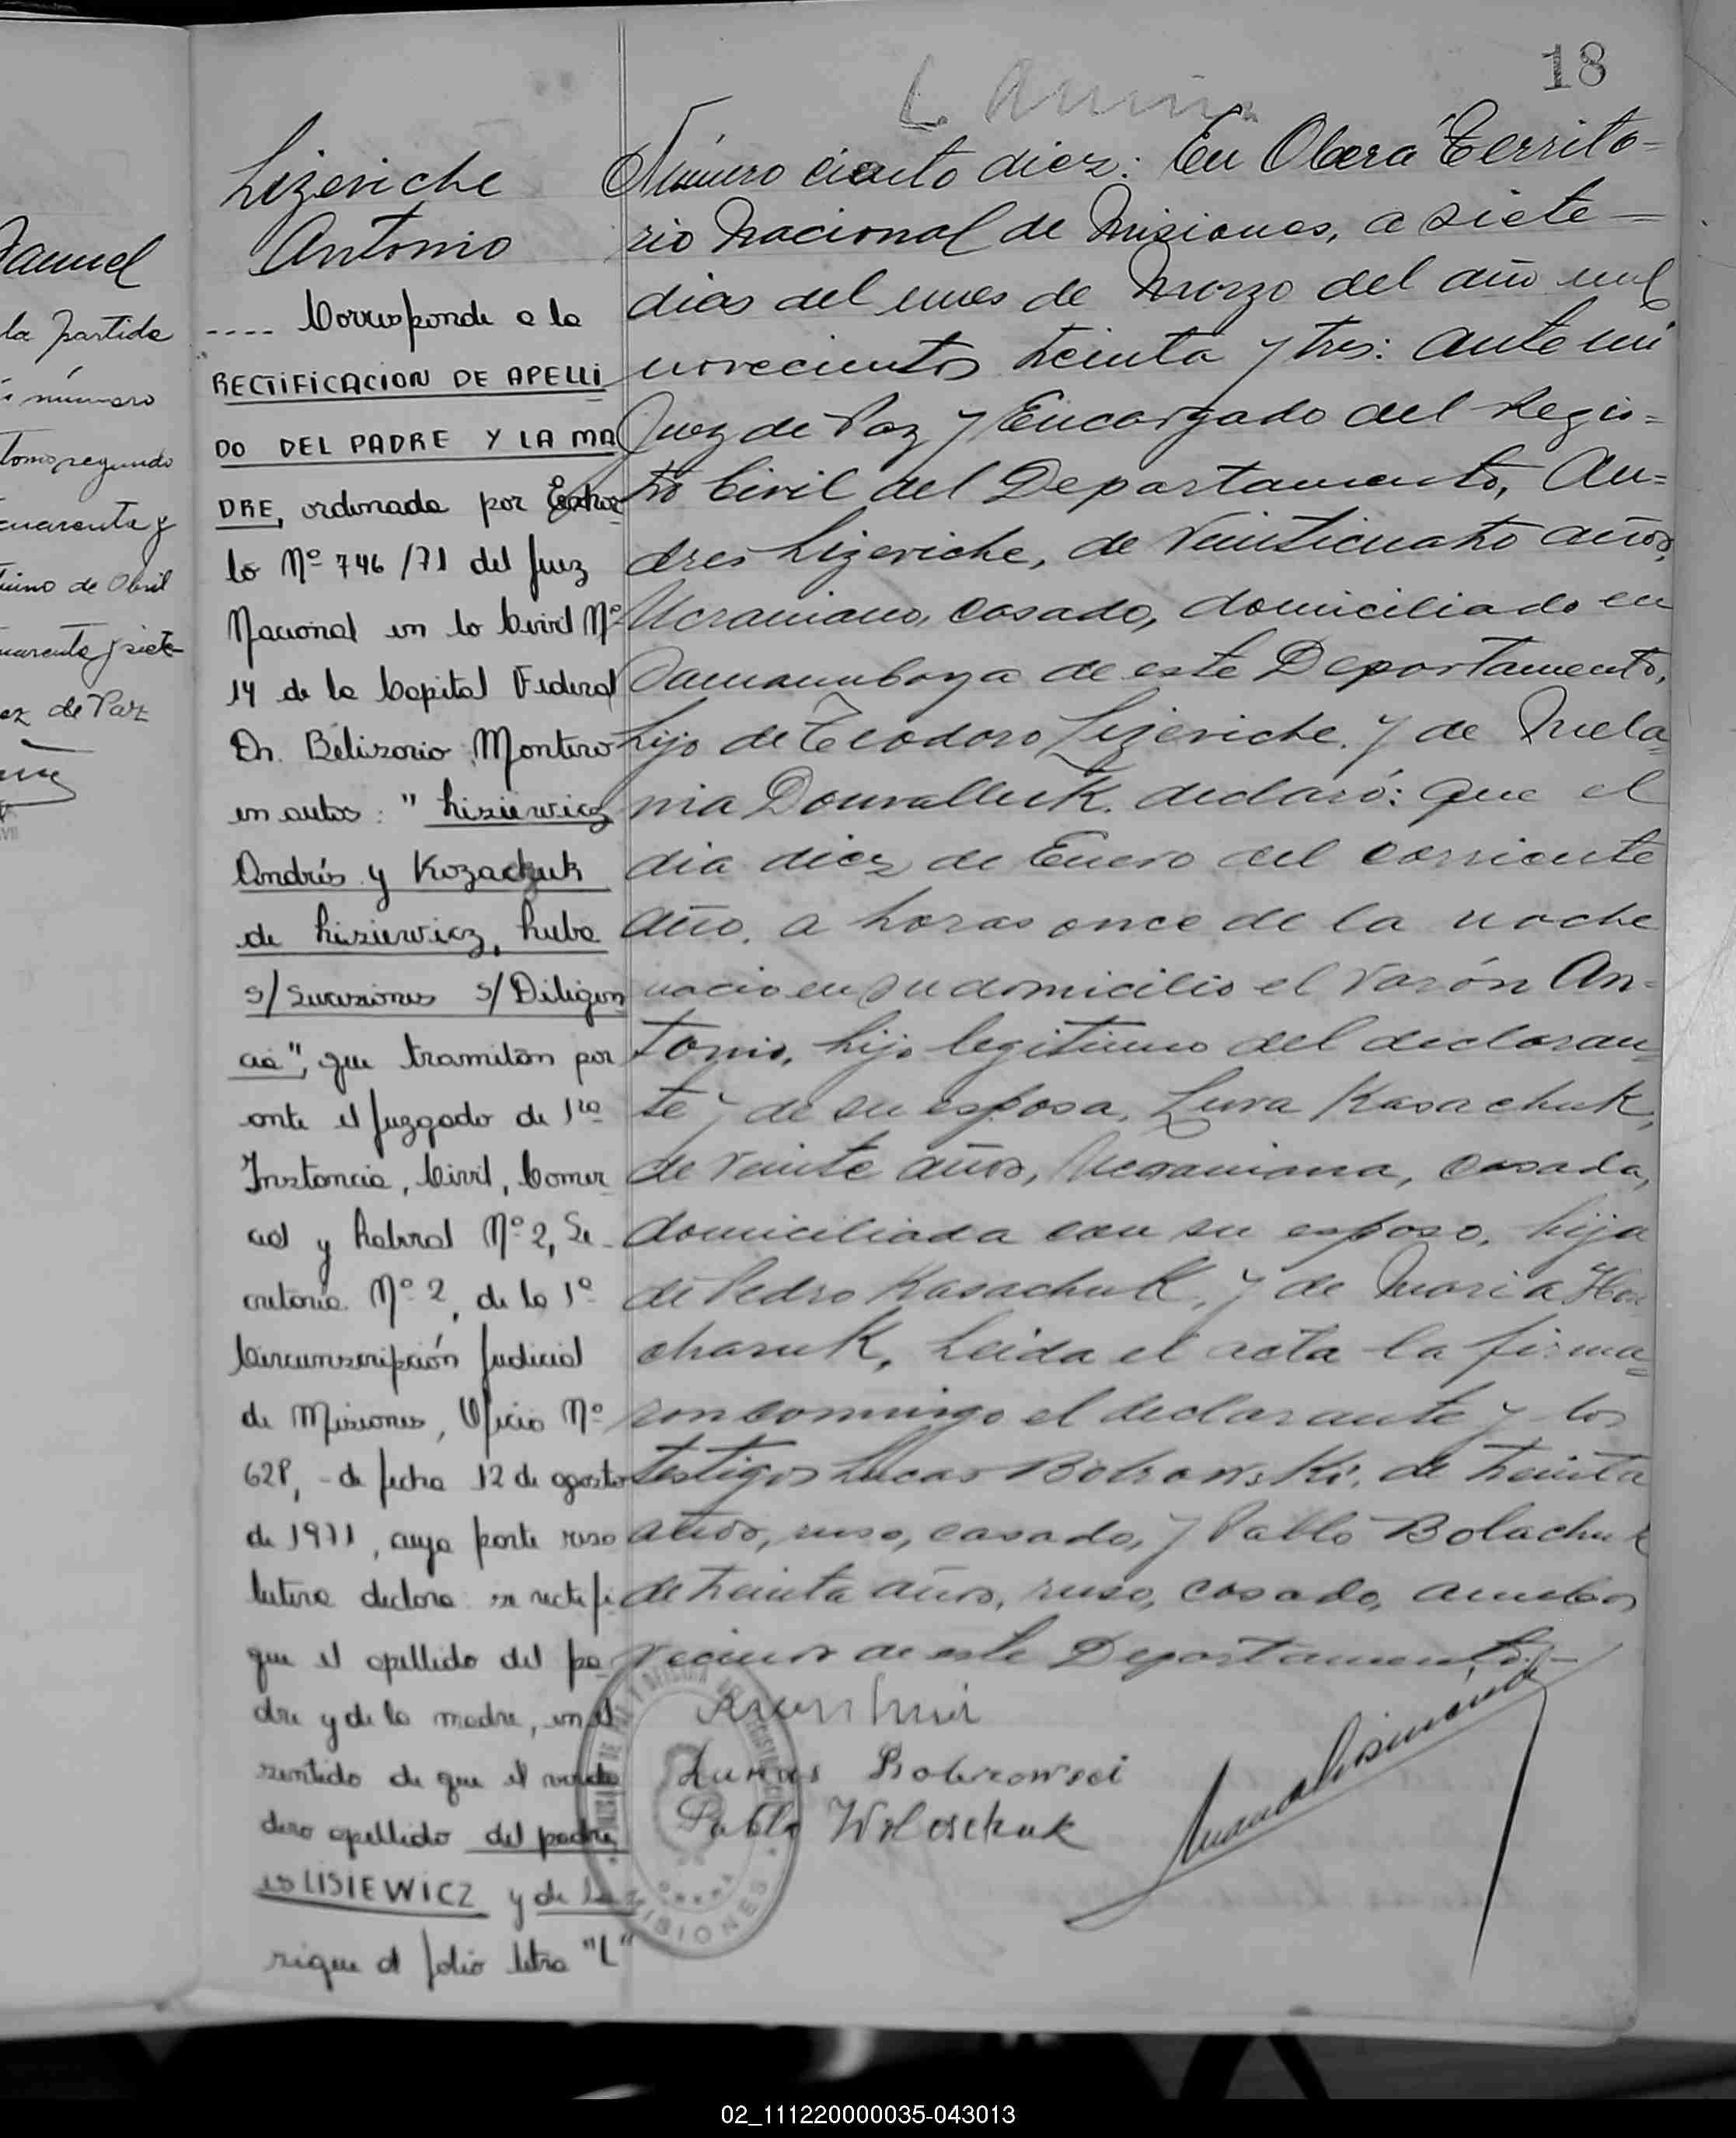 18
Lizeriche
Antonio
---- Corresponde a la
RECTIFICACION DE APELLI
DO DEL PADRE Y LA MA
DRE, ordenada por Exhor
to Nº 746/71 del Juez
Nacional en lo Civil Nº
14 de la Capital Federal
Dr. Belisario Montero
en autos: "Lisiewicz
Andrés y Kozachuk
de Lisiewicz, Luba
s/ Sucesiones s/ Diligen
cia", que tramitan por
ante el Juzgado de 1ra
Instancia, Civil, Comer
cial y Laboral Nº 2, Se
cretaria Nº 2, de la 1º
Circunscripción Judicial
de Misiones, Oficio Nº
628, - de fecha 12 de agosto
de 1971, cuya parte reso
lutiva declara: se rectifi
que el apellido del pa
dre y de la madre, en el
sentido de que el verda
dero apellido del padre
es LISIEWICZ y de la
sigue al folio letra "L"
Número ciento diez: En Oberá Territo=
rio Nacional de Misiones, a siete —
dias del mes de Marzo del año mil
novecientos treinta y tres: ante mi
Juez de Paz y Encargado del Regis=
tro Civil del Departamento, An=
dres Lizeriche, de veinticuatro años,
Ucraniano, casado, domiciliado en
de este Departamento,
hijo de Teodoro Lizeriche, y de Mela=
nia declaró: Que el
dia diez de Enero del corriente
año, a horas once de la noche
nacio en su domicilio el varón An=
tonio, hijo legitimo del declaran=
te y de su esposa, Luva Kasachuk,
de veinte años, Ucraniana, casada,
domiciliada con su esposo, hija
de Pedro Kasachuk, y de Maria
charuk, Leida el acta la firma=
ron conmigo el declarante y los
testigos Lucas Bobrowski, de treinta
años, ruso, casado, y Pablo Bolachuk
de treinta años, ruso, casado, ambos
vecinos de este Departamento. —
Lukas Bobrowsci
Pablo Woloschuk
MISIONES
Manuel
la partida
número
tomo segundo
cuarenta y
de Abril
cuarenta y siete
de Paz
02_111220000035-043013